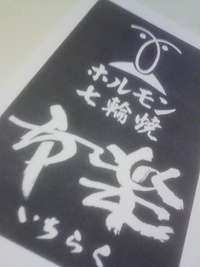 ホルモン
七輪焼
市楽
いちらく